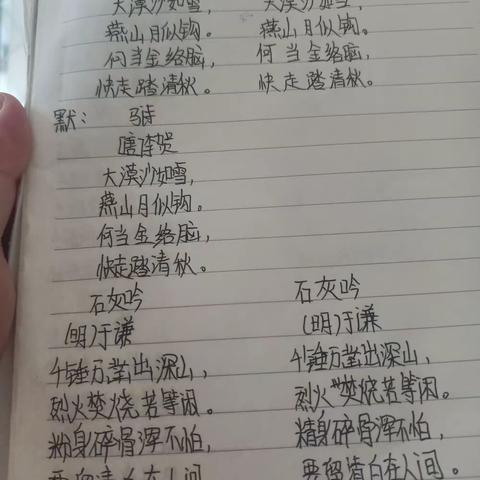 大漠沙如雪, 大漠沙如雪,
燕山月似钩。 燕山月似钩。
何当金络脑, 何当金络脑,
快走踏清秋。 快走踏清秋。
默: 马诗
唐李贺
大漠沙如雪,
燕山月似钩。
何当金络脑,
快走踏清秋。
石灰吟 石灰吟
(明)于谦 (明)于谦
千锤万凿出深山, 千锤万凿出深山,
烈火焚烧若等闲。 烈火焚烧若等闲。
粉身碎骨浑不怕, 精身碎骨浑不怕,
要留清白在人间 要留清白在人间。